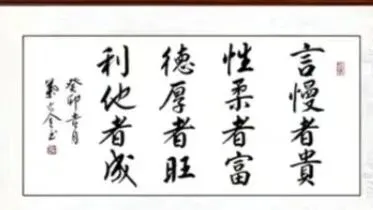 言慢者貴
性柔者富
德厚者旺
利他者成
癸卯